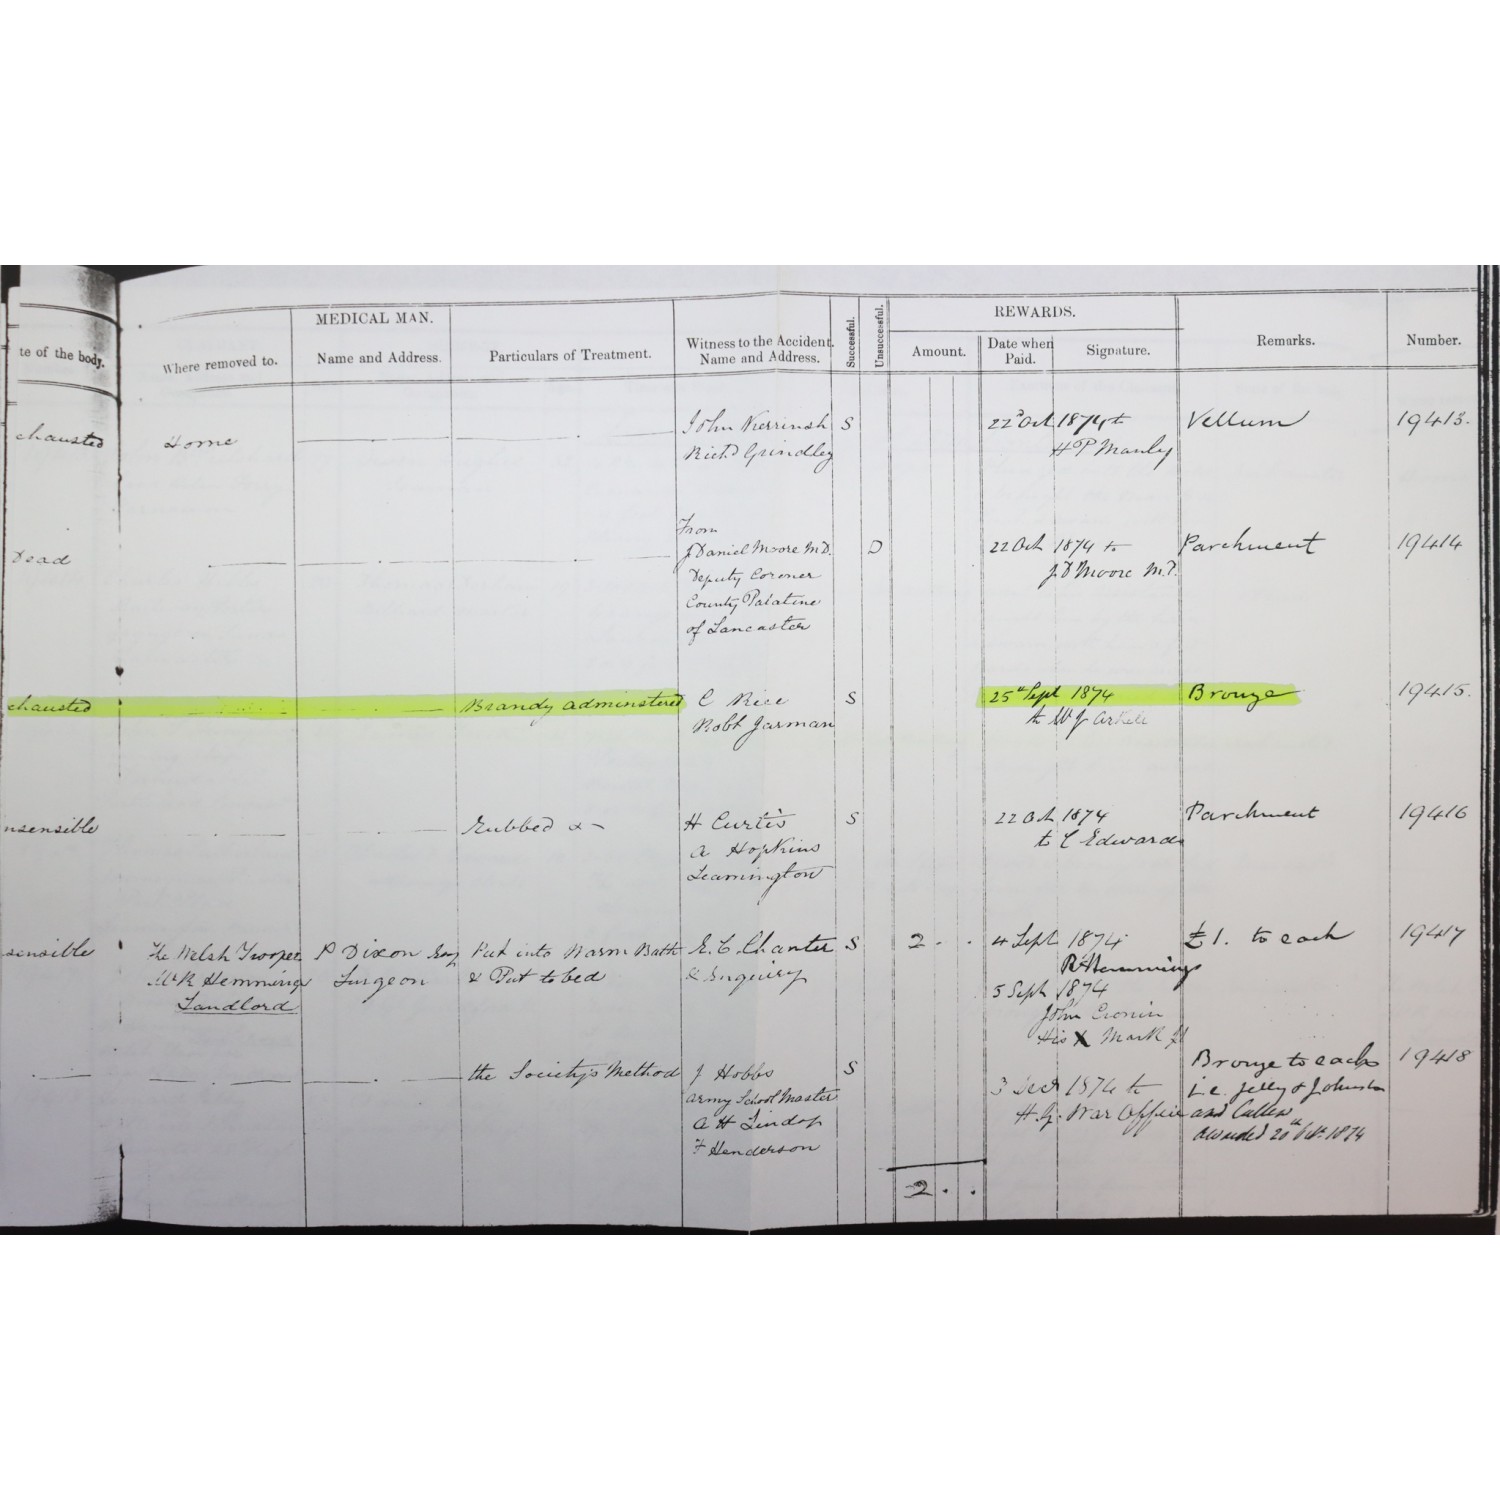 te of the body.
Where removed to.
MEDICAL MAN.
Name and Address.
Particulars of Treatment.
Witness to the Accident.
Name and Address.
Successful.
Unsuccessful.
REWARDS.
Amount.
Date when Paid.
Signature.
Remarks.
Number.
chausted Home John Richd Grindley S 22d Oct 1874 to Vellum 19413.
H P Manly
Dead From D 22 Oct 1874 to Parchment 19414
J Daniel Moore M.D. J. D Moore M.D.
Deputy Coroner
County Palatine
of Lancaster
chausted Brandy adminstered C Rice S 25th Sept 1874 Bronze 19415.
Robt Jarman to W J
nsensible Rubbed H Curtis S 22 Oct 1874 Parchment 19416
A Hopkins to C Edwards
Leamington
sensible The Welsh Trooper P Dixon Esq Put into Warm Bath E. C. Chanter S 2 . . 4 Sept 1874 £1. to each 19417
Mr R Hemming Surgeon & Put to bed & Enquiry R Hemmings
Landlord 5 Sept 1874
John Cronin
His X Mark
the Society's Method J Hobbs S Bronze to each 19418
Army School Master 3 Decr 1874 to i.e. Jelly & Johnston
A H Lindop H. G. War Office and Cullen
F Henderson awarded 20th Octr. 1874
2 . .